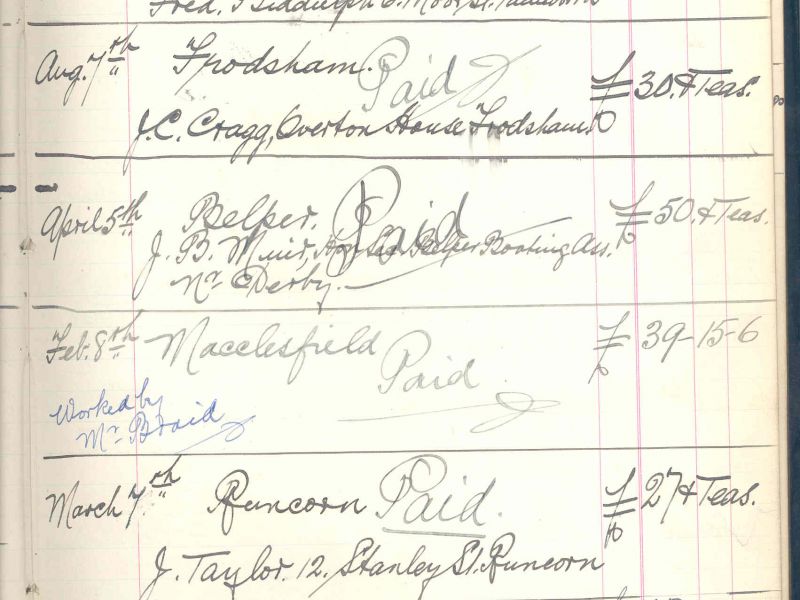 Fred. Biddulph 6. Moor St.
Aug. 7th Frodsham. Paid £30. & Teas.
J. C. Cragg, Overton House Frodsham.
April 5th Belper. Paid £50. & Teas.
J. B. Muir, Hon Sec. Belper Boating Ass.
Nr Derby.
Feb. 8th Macclesfield £39-15-6
Paid
Worked by
Mr Braid
March 7th Runcorn Paid. £27 & Teas.
J. Taylor. 12. Stanley St. Runcorn